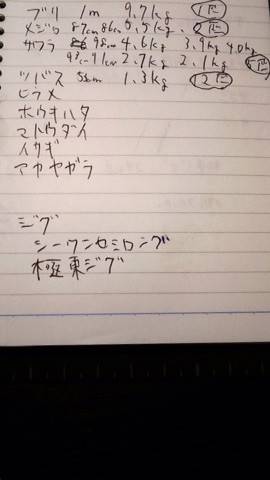 ブリ 1m 9.7kg 1匹
メジロ 87cm 86cm 5.5kg 2匹
サワラ 98cm 4.6kg 3.9kg 4.0kg
93cm 91cm 2.7kg 2.1kg 5匹
ツバス 55cm 1.3kg 12匹
ヒラメ
ホウキハタ
マトウダイ
イサギ
アカヤガラ
ジグ
シーワンセミロング
極東ジグ